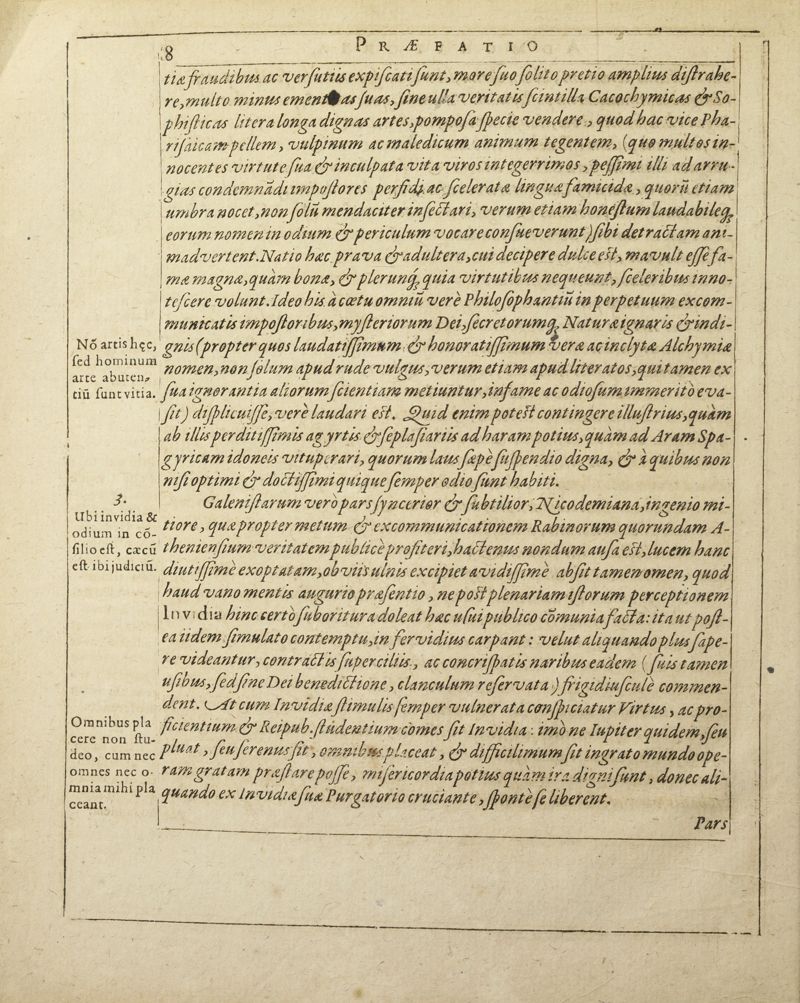 8
PRÆFATIO
tiæ fraudibus ac versutiis expiscati sunt, more suo solito pretio amplius distrahe-
re, multo minus ement as suas, sine ulla veritatis scintilla Cacochymicas & So-
phisticas litera longa dignas artes, pomposa specie vendere, quod hac vice Pha-
risaicam pellem, vulpinum ac maledicum animum tegentem, (quo multos in-
nocentes virtute sua & inculpata vita viros integerrimos, pessimi illi ad arru-
gias condemnãdi impostores perfidi, ac scelerata linguæ famicidæ, quorũ etiam
umbra nocet, non solũ mendaciter infectari, verum etiam honestum laudabileq́;
eorum nomen in odium & periculum vocare consueverunt) sibi detractam ani-
madvertent. Natio hæc prava & adultera, cui decipere dulce est, mavult esse fa-
mæ magnæ, quàm bonæ, & plerunq́; quia virtutibus nequeunt, sceleribus inno-
tescere volunt. Ideo his à cœtu omniũ verè Philosophantiũ in perpetuum excom-
municatis impostoribus, mysteriorum Dei, secretorumq́; Naturæ ignaris & indi-
Nõ artis hęc,
sed hominum
arte abuten-
tiũ sunt vitia.
gnis (propter quos laudatissimum & honoratissimum veræ ac inclytæ Alchymiæ
nomen, non solum apud rude vulgus, verum etiam apud literatos, qui tamen ex
sua ignorantia aliorum scientiam metiuntur, infame ac odiosum immeritò eva-
sit) displicuisse, verè laudari est. Quid enim potest contingere illustrius, quàm
ab illis perditissimis agyrtis & seplasiariis ad haram potius, quàm ad Aram Spa-
gyricam idoneis vituperari, quorum laus sæpè suspendio digna, & à quibus non
nisi optimi & doctissimi quique semper odio sunt habiti.
3.
Ubi invidia &
odium in cõ-
silio est, cæcũ
est ibi judiciũ.
Galenistarum verò pars syncerior & subtilior, Nicodemiana, ingenio mi-
tiore, quæ propter metum & excommunicationem Rabinorum quorundam A-
theniensium veritatem publicè profiteri, hactenus nondum ausa est, lucem hanc
diutissimè exoptatam, obviis ulnis excipiet avidissimè absit tamen omen, quod
haud vano mentis augurio præsentio, ne post plenariam istorum perceptionem
Invidia hinc certò suboritura doleat hæc usui publico cõmunia facta: ita ut post-
ea iidem simulato contemptu, in fervidius carpant: velut aliquando plus sape-
re videantur, contractis superciliis, ac concrispatis naribus eadem (suis tamen
usibus, sed sine Dei benedictione, clanculum reservata) frigidiusculè commen-
dent. At cum Invidiæ stimulis semper vulnerata conspiciatur Virtus, ac pro-
Omnibus pla
cere non stu-
deo, cum nec
omnes nec o-
mnia mihi pla
ceant.
ficientium & Reipub. studentium comes sit Invidia: imò ne Iupiter quidem, seu
pluat, seu serenus sit, omnibus placeat, & difficilimum sit ingrato mundo ope-
ram gratam præstare posse, misericordia potius quàm ira digni sunt, donec ali-
quando ex Invidiæ suæ Purgatorio cruciante, spontè se liberent.
Pars